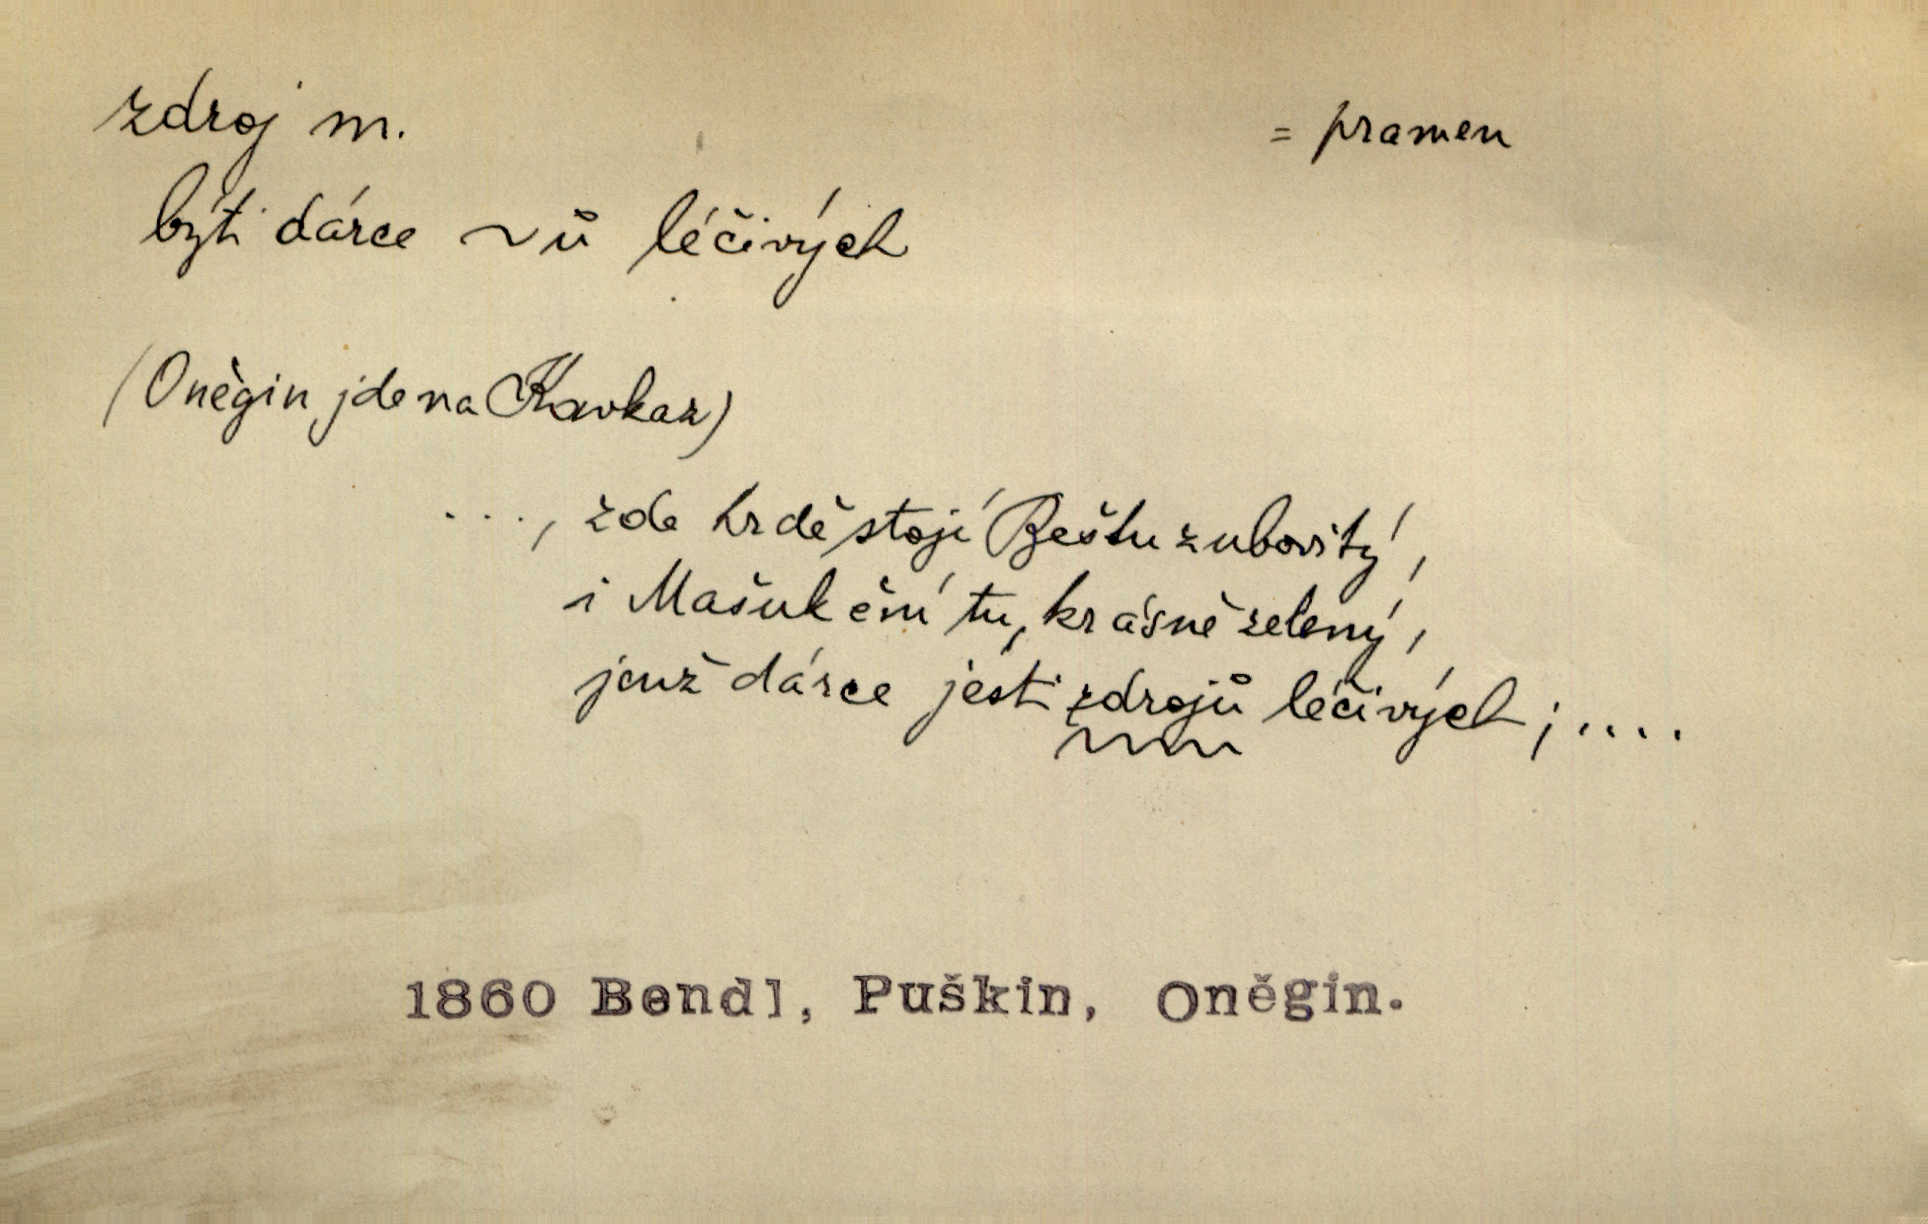 zdroj m. = pramen
býti dárce ~ů léčivých
(Oněgin jde na Kavkaz)
..., zde hrdě stojí Beštu zubovitý,
i Mašuk ční tu, krásně zelený,
jenž dárce jesti zdrojů léčivých; ....
1860 Bendl, Puškin, Oněgin.